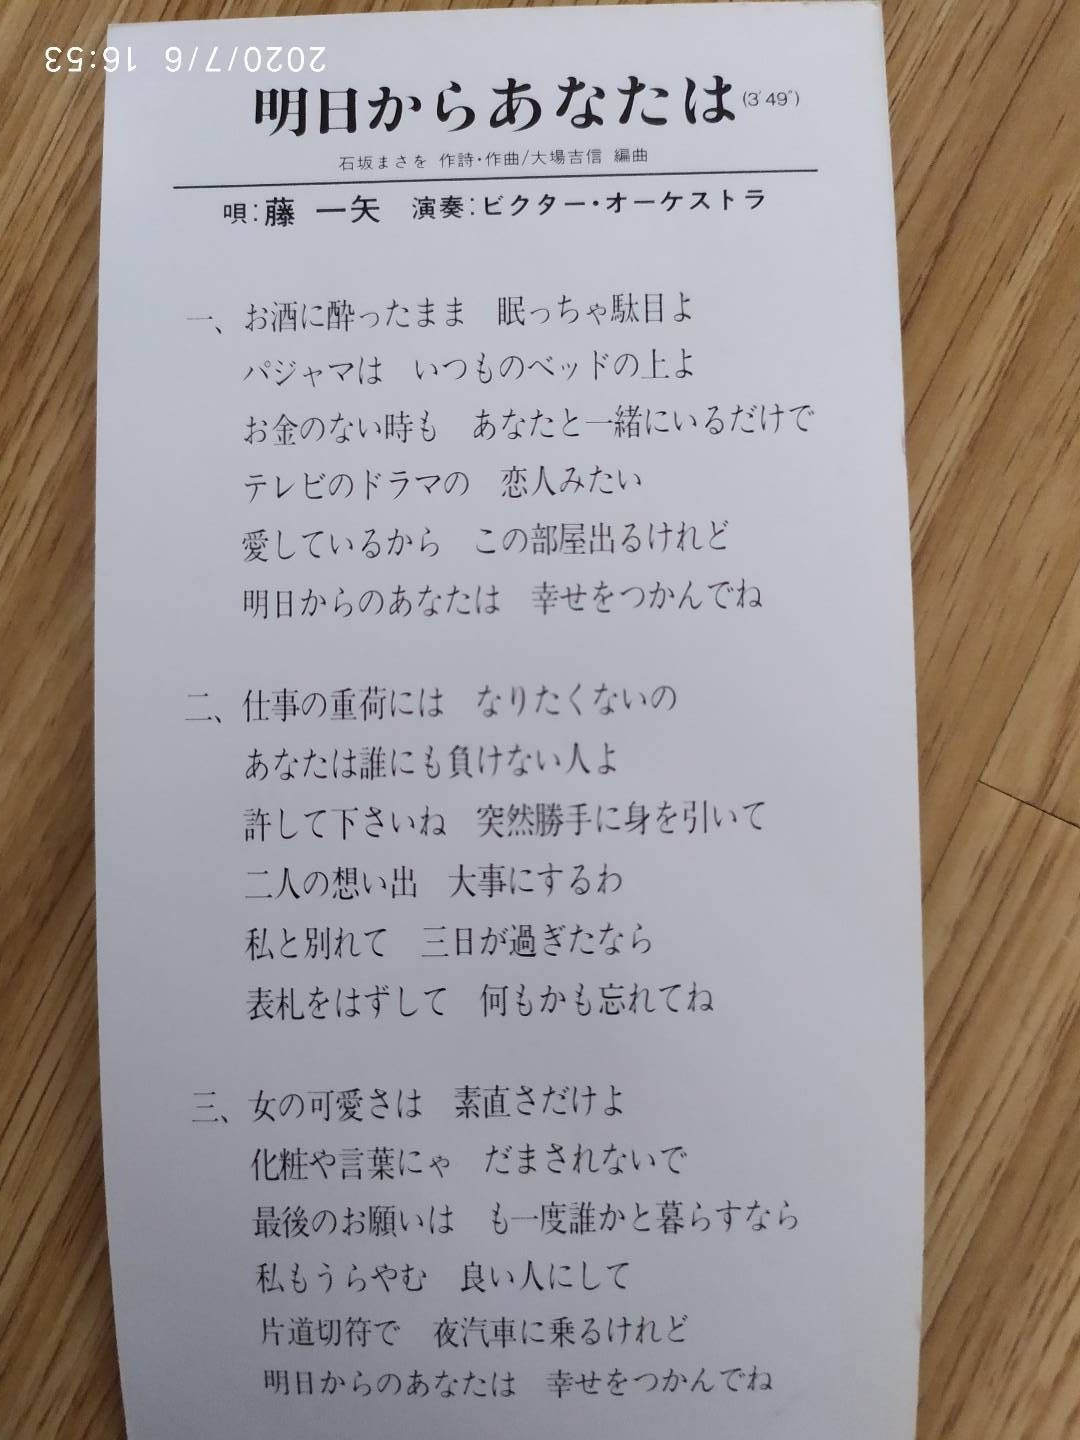 2020/7/6 16:53
明日からあなたは(3'49")
石坂まさを 作詩・作曲/大場吉信 編曲
唄:藤 一矢 演奏:ビクター・オーケストラ
一、お酒に酔ったまま 眠っちゃ駄目よ
パジャマは いつものベッドの上よ
お金のない時も あなたと一緒にいるだけで
テレビのドラマの 恋人みたい
愛しているから この部屋出るけれど
明日からのあなたは 幸せをつかんでね
二、仕事の重荷には なりたくないの
あなたは誰にも負けない人よ
許して下さいね 突然勝手に身を引いて
二人の想い出 大事にするわ
私と別れて 三日が過ぎたなら
表札をはずして 何もかも忘れてね
三、女の可愛さは 素直さだけよ
化粧や言葉にゃ だまされないで
最後のお願いは も一度誰かと暮らすなら
私もうらやむ 良い人にして
片道切符で 夜汽車に乗るけれど
明日からのあなたは 幸せをつかんでね